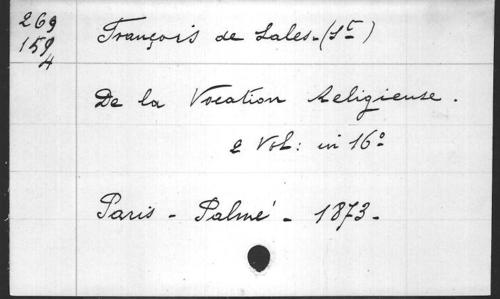 269
159
4
François de Sales - (St)
De la Vocation Religieuse.
2 Vol: in 16º
Paris - Palmé - 1873 -